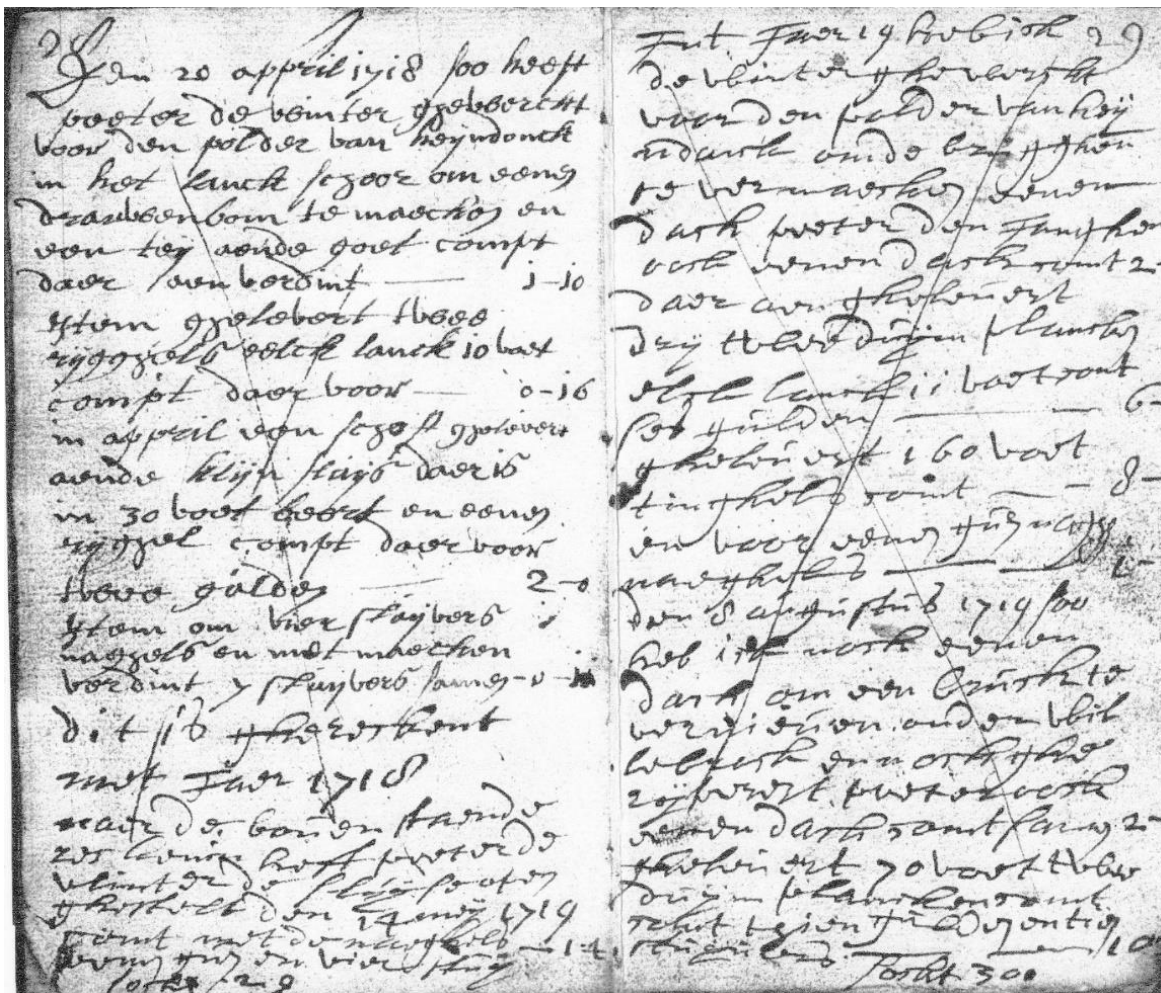 28
Den 20 appril 1718 soo heeft
peeter de vlinter ghewerckt
voor den polder van heyndonck
in het lanck schoor om eenen
draeyenbom te maecken en
een tey aende goet compt
daer aen verdint — 1-10
ijtem ghelevert twee
rygghels eelck lanck 10 voet
compt daer voor — 0-16
in appril een schof ghelevert
aende klijn sluijs daer is
in 30 voet beert en eenen
rygghel compt daer voor
twee gulden — 2-0
ijtem om vier stuyvers
naeghels en met maecken
verdint 7 stuyvers samen
dit is gherekent
met Jaer 1718
naer de boven staende
reckenin heeft peeter de
vlinter de
ghestelt den 14 meij 1719
comt met de naeghels
eenen gul en vier stuy — 1-4
29
Int Jaer 19 heb ick
de vlinter ghewerckt
voor den polder van heij
ndonck om de brugghen
te vermaecken eenen
dach peeter den Jonghe
oock eenen dach comt 2-
daer aen ghelevert
drij twee duijm plancken
elck lanck 11 voet comt
ses gulden — 6-
ghelevert 160 voet
tinghels comt — 8-
en voor eenen gul
naeghels — 1-
den 8 augustus 1719 soo
heb ick noch eenen
dach om een bruck te
vernieuen onder wil
lebroeck en noch ghe
peeter oock
eenen dach comt samen 2-
ghelevert 70 voet twee
duijm plancken comt
comt thien gulden en tien
stuijvers — 10